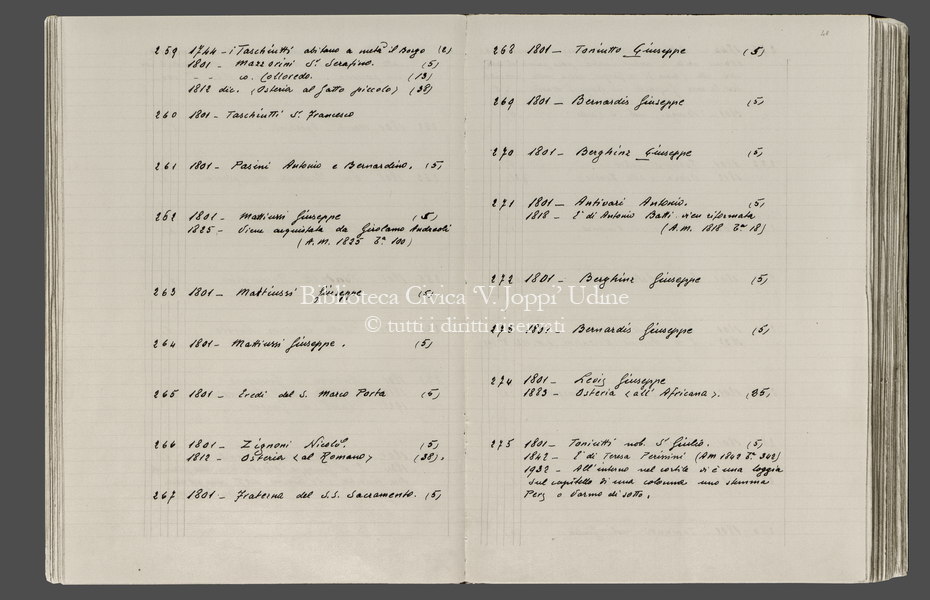 259 1744 - i Taschiutti abitano a metà il Borgo (2)
1801 - Mazzorini Sr. Serafino. (5)
- - co. Colloredo. (13)
1812 dic. (Osteria al Gatto piccolo) (38)
260 1801 - Taschiutti Sr. Francesco
261 1801 - Pasini Antonio e Bernardino. (5)
262 1801 - Mattiussi Giuseppe (5)
1825 - Viene acquistata da Girolamo Andreoli
(A.M. 1825 Ta 100)
263 1801 - Mattiussi Giuseppe (5)
264 1801 - Mattiussi Giuseppe. (5)
265 1801 - Eredi del S. Marco Porta (5)
266 1801 - Zignoni Nicolò. (5)
1812 - Osteria <al Romano> (38).
267 1801 - Fraterna del S.S. Sacramento. (5)
268 1801 - Toniutto Giuseppe (5)
269 1801 - Bernardis Giuseppe (5)
270 1801 - Berghinz Giuseppe (5)
271 1801 - Antivari Antonio. (5)
1818 - E' di Antonio Batti. vien riformata
(A.M. 1818 Ta 18)
272 1801 - Berghinz Giuseppe (5)
273 1801 - Bernardis Giuseppe (5)
274 1801 - Giuseppe
1883 - Osteria <all'Africana>. (35)
275 1801 - Toniutti nob. Sr. Giulio. (5)
1842 - E' di Teresa Perinini (AM 1842 Ta 342)
1932 - All'interno nel cortile vi è una loggia
sul capitello di una colonna uno stemma
Perz o Varmo di sotto.
Biblioteca Civica 'V. Joppi' Udine
© tutti i diritti riservati